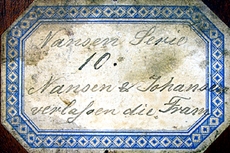 Nansen Serie
10.
Nansen & Johansen
verlaſsen die Fram